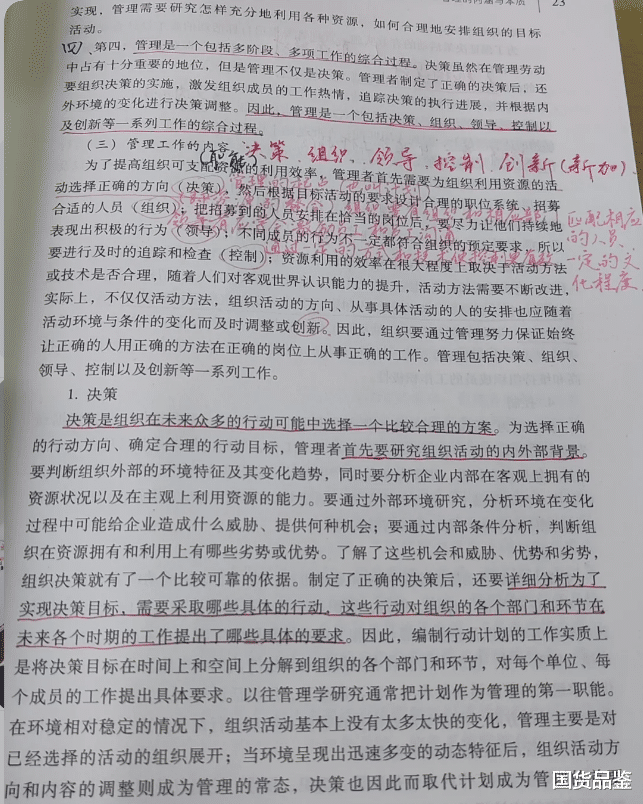 23
实现，管理需要研究怎样充分地利用各种资源，如何合理地安排组织的目标
活动。
四、第四，管理是一个包括多阶段、多项工作的综合过程。决策虽然在管理劳动
中占有十分重要的地位，但是管理不仅是决策。管理者制定了正确的决策后，还
要组织决策的实施，激发组织成员的工作热情，追踪决策的执行进展，并根据内
外环境的变化进行决策调整。因此，管理是一个包括决策、组织、领导、控制以
及创新等一系列工作的综合过程。
（三）管理工作的内容
(职能) 决策、组织、领导、控制、创新(新加)
为了提高组织可支配资源的利用效率，管理者首先需要为组织利用资源的活
动选择正确的方向（决策），然后根据目标活动的要求设计合理的职位系统，招募
合适的人员（组织）；把招募到的人员安排在恰当的岗位后，要尽力让他们持续地
表现出积极的行为（领导）；不同成员的行为不一定都符合组织的预定要求，所以
要进行及时的追踪和检查（控制）；资源利用的效率在很大程度上取决于活动方法
匹配相应
的人员
一定的文
化程度
或技术是否合理，随着人们对客观世界认识能力的提升，活动方法需要不断改进，
实际上，不仅仅活动方法，组织活动的方向、从事具体活动的人的安排也应随着
活动环境与条件的变化而及时调整或创新。因此，组织要通过管理努力保证始终
让正确的人用正确的方法在正确的岗位上从事正确的工作。管理包括决策、组织、
领导、控制以及创新等一系列工作。
1. 决策
决策是组织在未来众多的行动可能中选择一个比较合理的方案。为选择正确
的行动方向、确定合理的行动目标，管理者首先要研究组织活动的内外部背景。
要判断组织外部的环境特征及其变化趋势，同时要分析企业内部在客观上拥有的
资源状况以及在主观上利用资源的能力。要通过外部环境研究，分析环境在变化
过程中可能给企业造成什么威胁、提供何种机会；要通过内部条件分析，判断组
织在资源拥有和利用上有哪些劣势或优势。了解了这些机会和威胁、优势和劣势，
组织决策就有了一个比较可靠的依据。制定了正确的决策后，还要详细分析为了
实现决策目标，需要采取哪些具体的行动，这些行动对组织的各个部门和环节在
未来各个时期的工作提出了哪些具体的要求。因此，编制行动计划的工作实质上
是将决策目标在时间上和空间上分解到组织的各个部门和环节，对每个单位、每
个成员的工作提出具体要求。以往管理学研究通常把计划作为管理的第一职能。
在环境相对稳定的情况下，组织活动基本上没有太多太快的变化，管理主要是对
已经选择的活动的组织展开；当环境呈现出迅速多变的动态特征后，组织活动方
向和内容的调整则成为管理的常态，决策也因此而取代计划成为管
国货品鉴